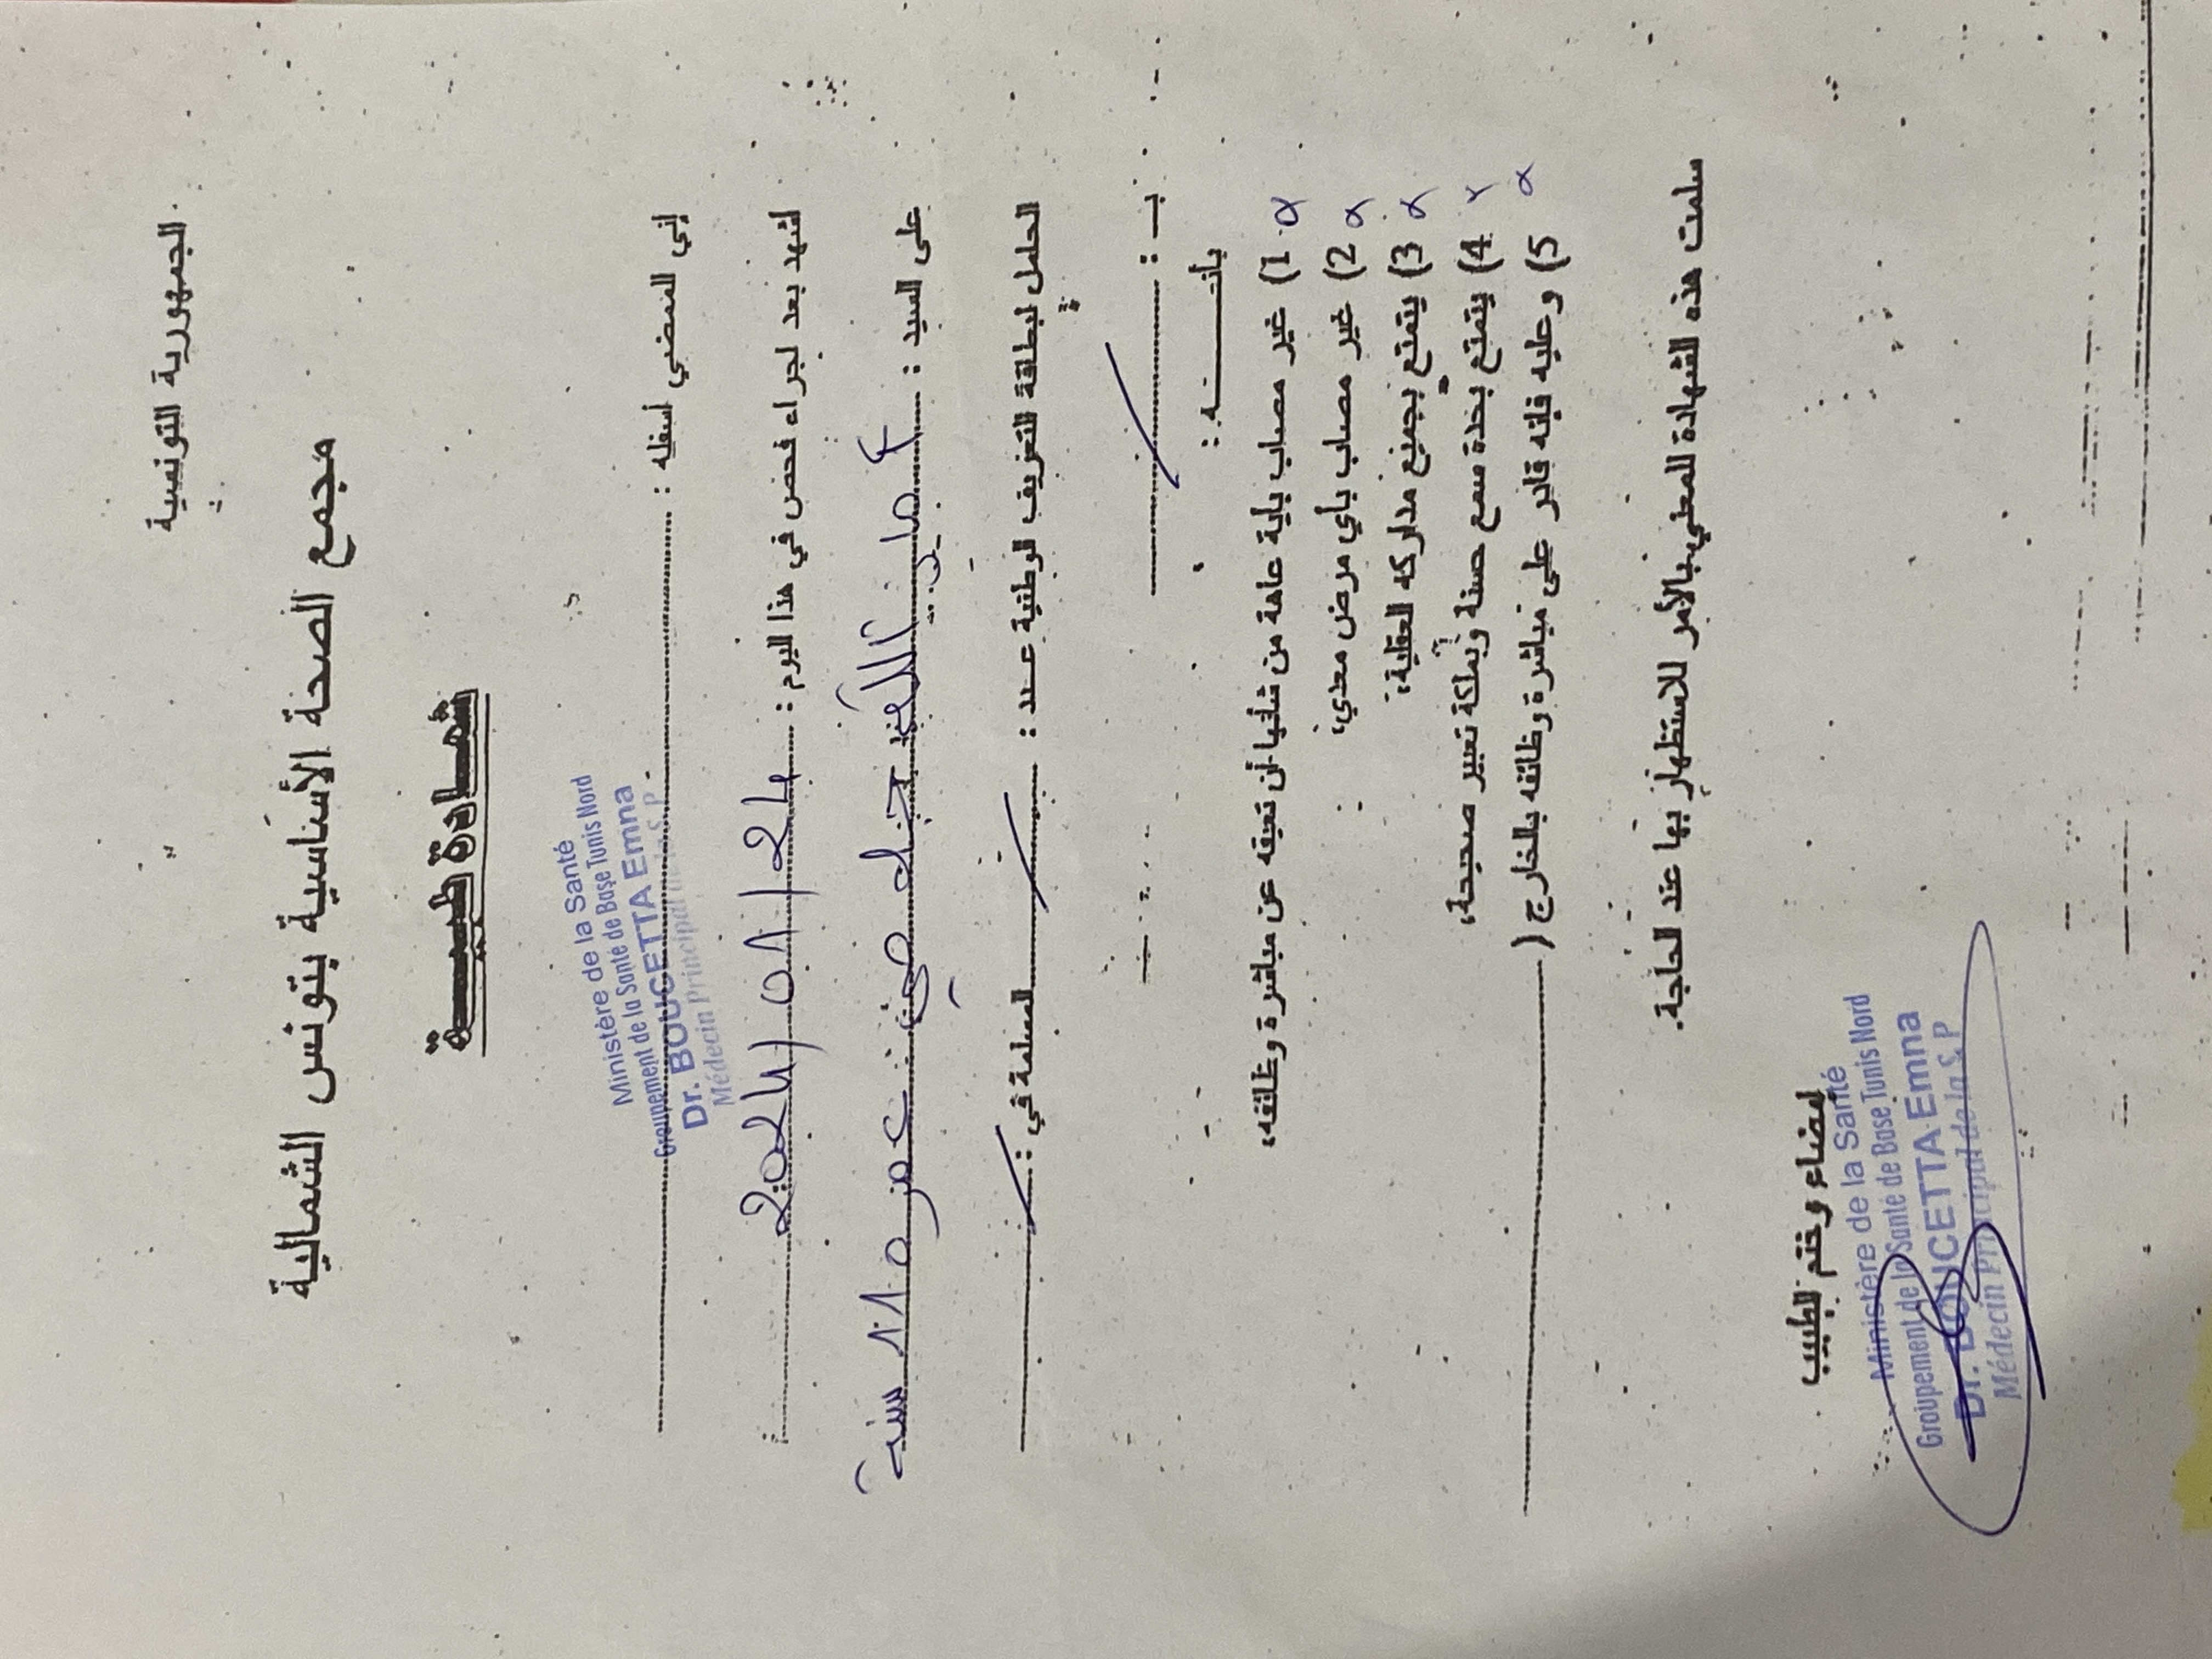 الجمهورية التونسية
مجمع الصحة الأساسية بتونس الشمالية
شهـــادة طبيـــة
إني الممضي أسفله :
Ministère de la Santé
Groupement de la Santé de Base Tunis Nord
Dr. BOUCETTA Emna
Médecin Principal de la S.P
أشهد بعد إجراء فحص في هذا اليوم : 24/01/2024
على السيد :
عمر 11 سنة
الحامل لبطاقة التعريف الوطنية عـدد :
المسلمة في :
بـ :
بأنــــه :
1) غير مصاب بأية عاهة من شأنها أن تعيقه عن مباشرة وظائفه،
2) غير مصاب بأي مرض معدي،
3) يتمتع بجميع مداركه العقلية،
4) يتمتع بحدة سمع حسنة وبملكة تعبير صحيحة،
5) وعليه فإنه قادر على مباشرة وظائفه بالخارج (
سلمت هذه الشهادة للمعني بالأمر للاستظهار بها عند الحاجة.
إمضاء وختم الطبيب
Ministère de la Santé
Groupement de la Santé de Base Tunis Nord
Dr. BOUCETTA Emna
Médecin Principal de la S.P